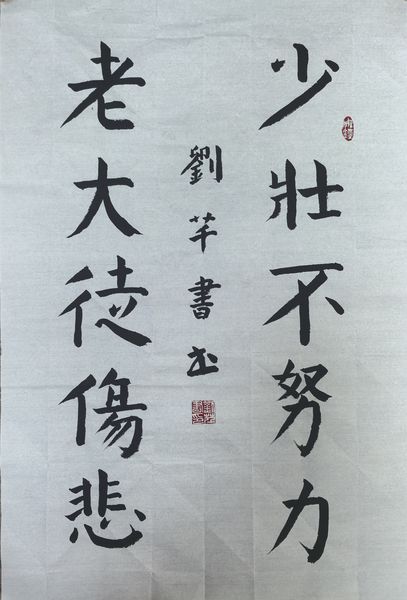 少壯不努力
老大徒傷悲
劉芊書书